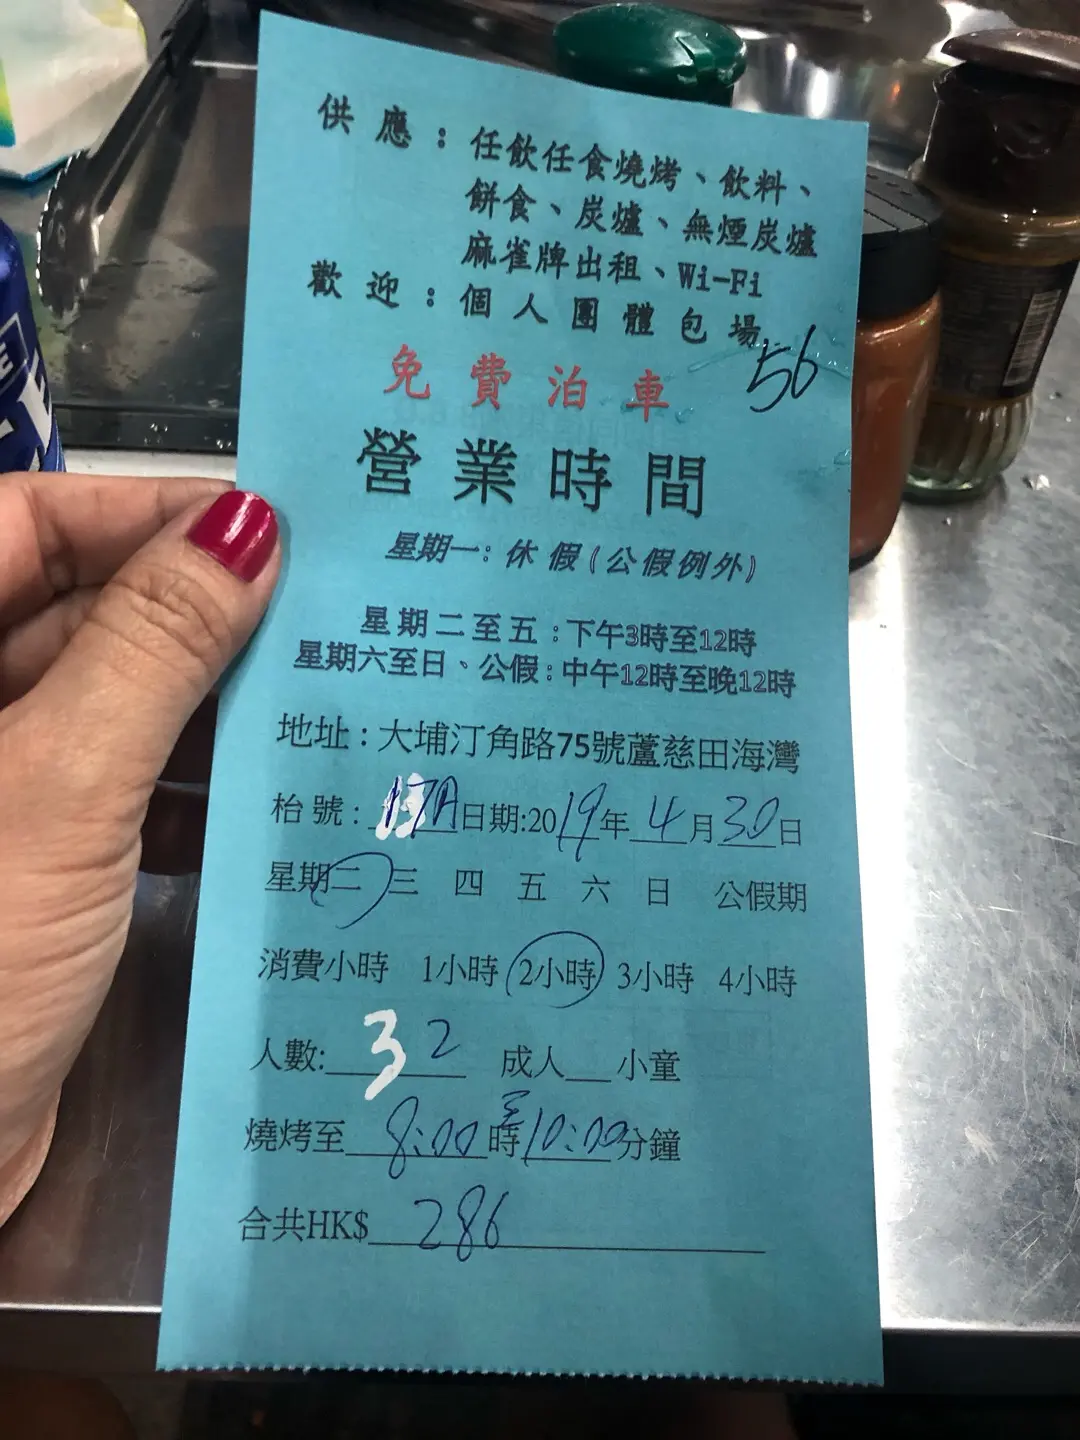 供應：任飲任食燒烤、飲料、
餅食、炭爐、無煙炭爐
麻雀牌出租、Wi-Fi
歡迎：個人團體包場
56
免費泊車
營業時間
星期一：休假（公假例外）
星期二至五：下午3時至12時
星期六至日、公假：中午12時至晚12時
地址：大埔汀角路75號蘆慈田海灣
枱號：17A 日期:2019年4月30日
星期二 三 四 五 六 日 公假期
消費小時 1小時 2小時 3小時 4小時
人數: 3 2 成人 小童
燒烤至 8:00時至10:00分鐘
合共HK$ 286